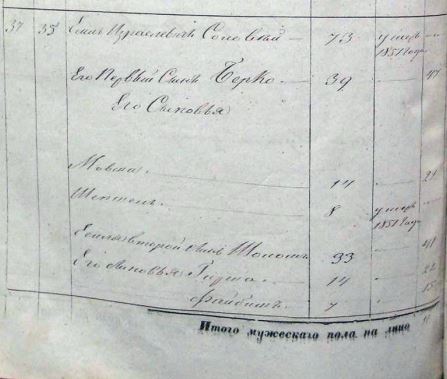 37 35 Ѐселъ Израелевичъ Соловый 73 умеръ 1851 года
Его Первый Сынъ Берко 39 47
Его Сыновья
Мовша 14 21
Шепшель 8 умеръ 1851 года
второй сынъ Шоломъ 33 41
Его сыновья Гирша 14 22
Файбишъ 7 15
Итого мужескаго пола на лицо